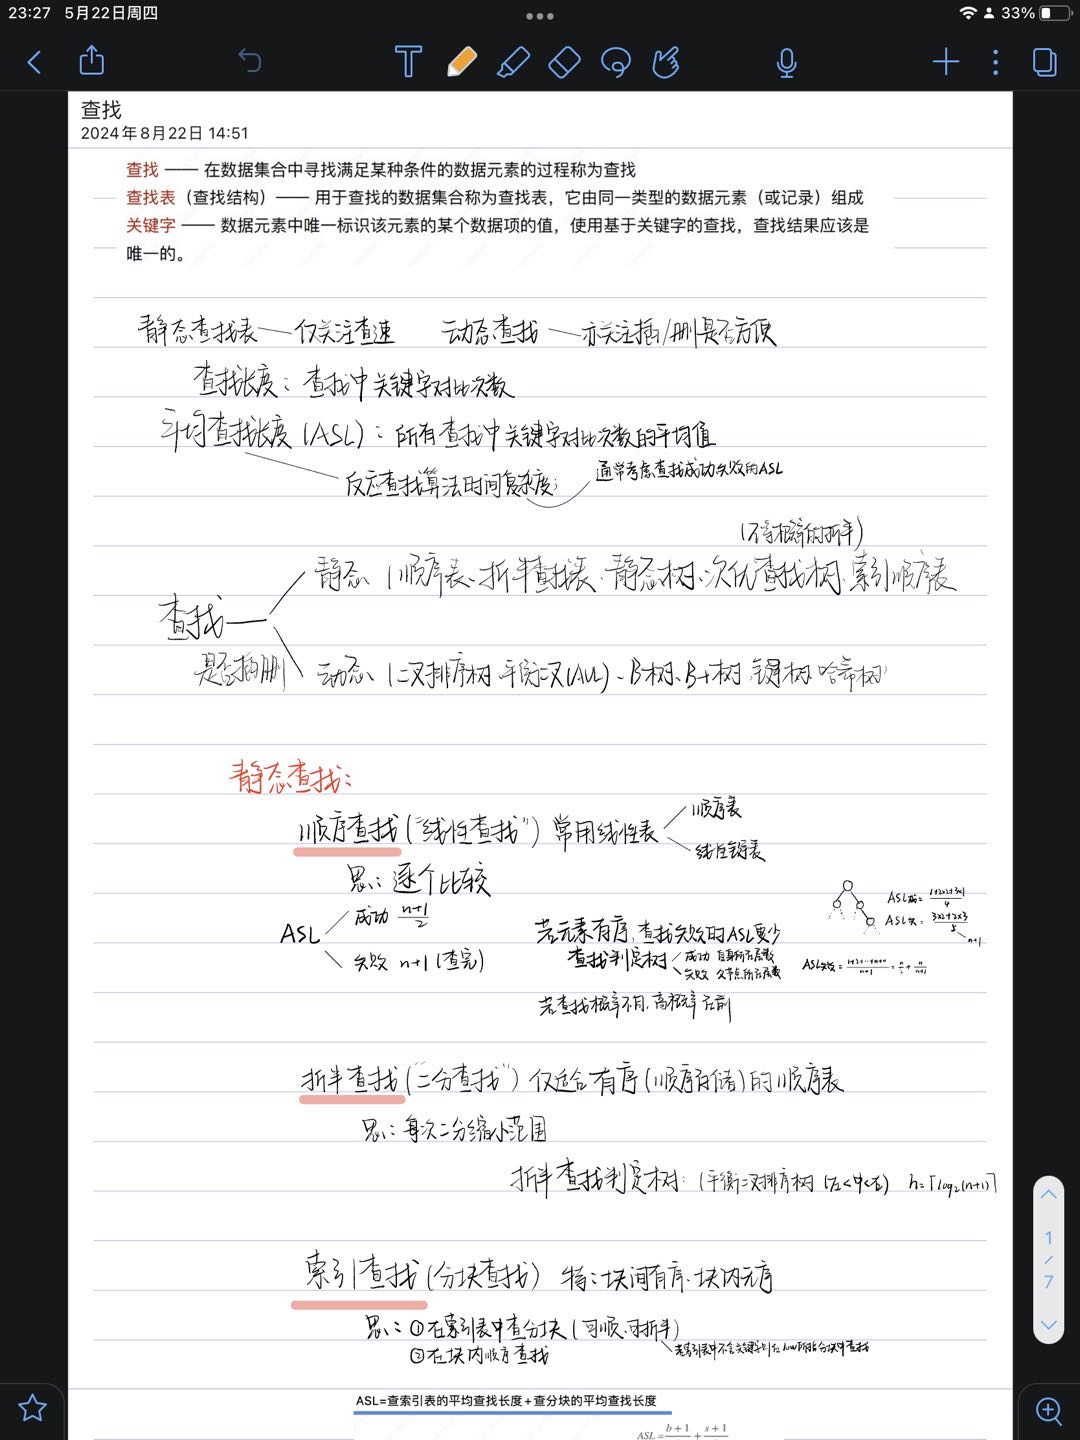 23:27 5月22日周四
33%
查找
2024年8月22日 14:51
查找 —— 在数据集合中寻找满足某种条件的数据元素的过程称为查找
查找表（查找结构）—— 用于查找的数据集合称为查找表，它由同一类型的数据元素（或记录）组成
关键字 —— 数据元素中唯一标识该元素的某个数据项的值，使用基于关键字的查找，查找结果应该是
唯一的。
静态查找表—仅关注查速 动态查找—亦关注插/删是否方便
查找长度：查找中关键字对比次数
平均查找长度(ASL)：所有查找中关键字对比次数的平均值
反应查找算法时间复杂度； 通常考虑查找成功失败的ASL
(不等概率的折半)
静态 (顺序表、折半查找表、静态树、次优查找树、索引顺序表
查找—
是否插删 动态 (二叉排序树、平衡二叉(AVL)、B树、B+树、键树、哈希树)
静态查找：
顺序查找("线性查找") 常用线性表
顺序表
线性链表
思：逐个比较
ASL
成功 n+1/2
失败 n+1 (查完)
若元素有序，查找失败的ASL更少
查找判定树
成功 自身所在层数
失败 父节点所在层数
ASL成= 1+2x2+3x1/4
ASL失= 3x2+2x3/5
n+1
ASL失败= 1+2+…+n+n/n+1 = n/2 + n/n+1
若查找概率不同，高概率在前
折半查找("二分查找") 仅适合有序(顺序存储)的顺序表
思：每次二分缩小范围
折半查找判定树：(平衡二叉排序树 (左<中<右) h=⌈log₂(n+1)⌉
索引查找(分块查找) 特：块间有序、块内无序
思：①在索引表中查分块(可顺、可折半)
若索引表中不含关键字则在low所指分块中查找
②在块内顺序查找
ASL=查索引表的平均查找长度+查分块的平均查找长度
ASL = b+1 + s+1
1
/
7